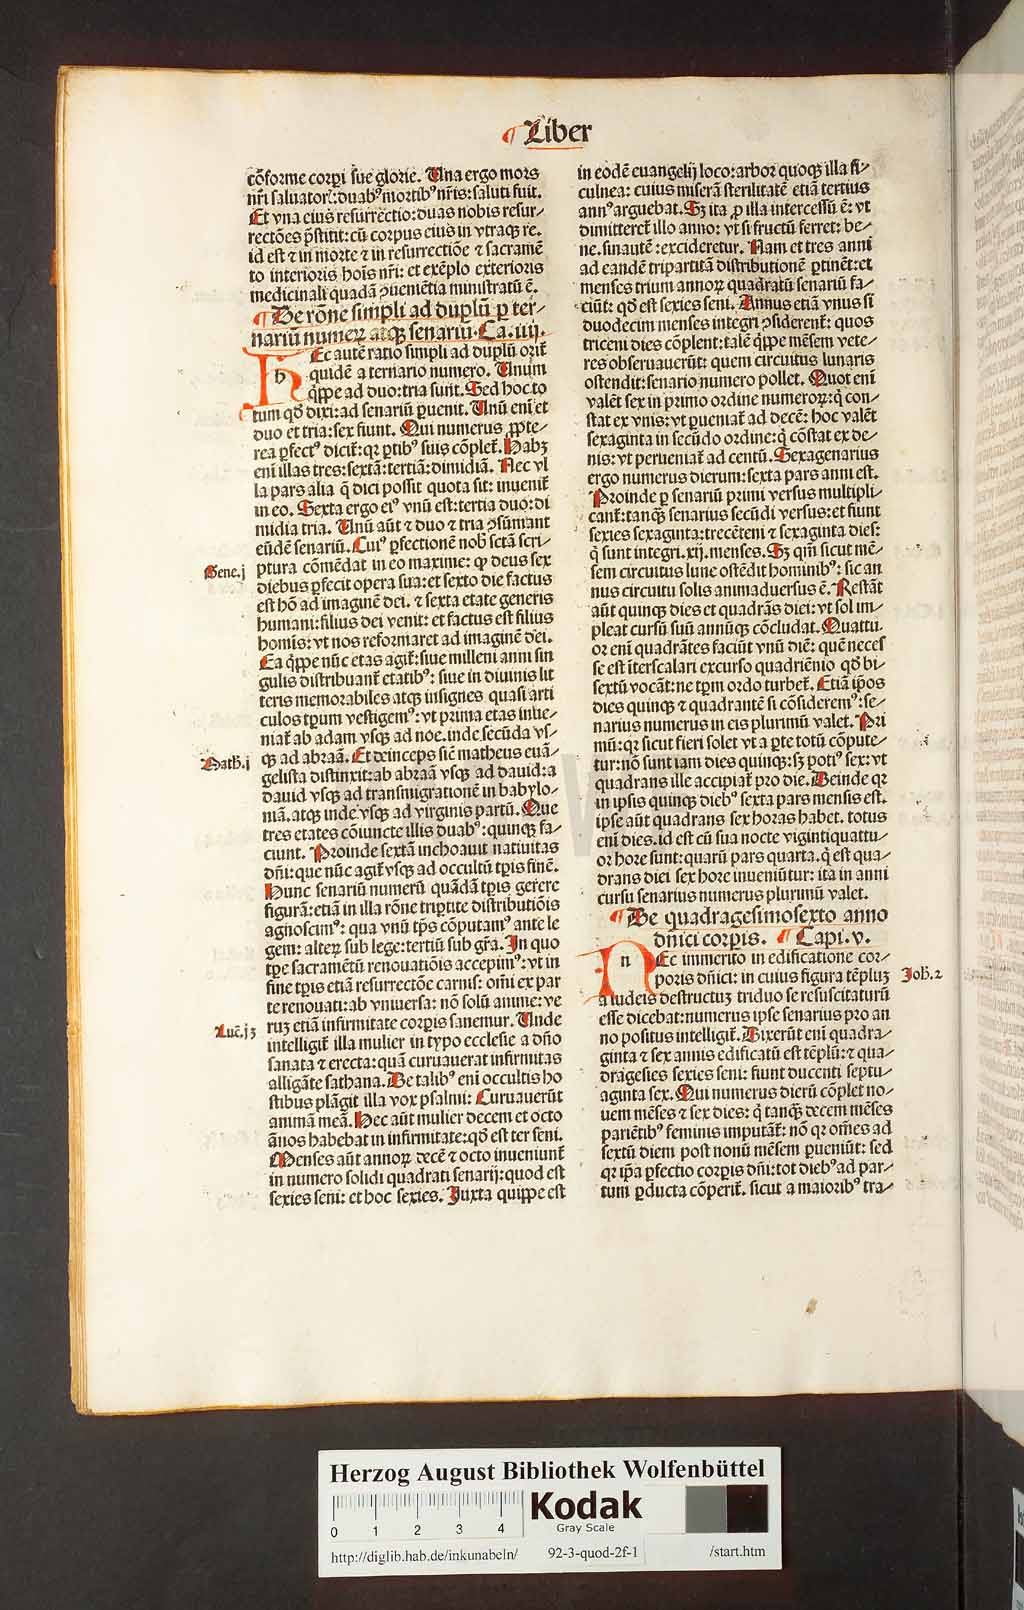 ¶ Liber
cōforme corpri sue glorie. Una ergo mors
nr̄i saluatoris: duabꝰ mortibꝰ nr̄is: saluti fuit.
Et vna eius resurrectio: duas nobis resur-
rectōes p̄stitit: cū corpus eius in vtraqꝫ re.
id est ⁊ in morte ⁊ in resurrectiōe ⁊ sacramē
to interioris hoīs nr̄i: et exēplo exterioris
medicinali quadā ꝯueniētia ministratū ē.
¶ De rōne simpli ad duplū ꝑ ter-
nariū numeꝝ atqꝫ senariū. Ca. iiij.
hEc autē ratio simpli ad duplū orit̄
quidē a ternario numero. Unum
q̄ppe ad duo: tria sunt. Sed hoc to
tum qd̄ dixi: ad senariū ꝑuenit. Unū eni et
duo et tria: sex fiunt. Qui numerus ꝓpte-
rea ꝑfectꝰ dicit̄: qꝛ ꝑtibꝰ suis cōplet̄. Habꝫ
eni illas tres: sextā: tertiā: dimidiā. Nec vl
la pars alia q̄ dici possit quota sit: inuenit̄
in eo. Sexta ergo eiꝰ vnū est: tertia duo: di
midia tria. Unū aūt ⁊ duo ⁊ tria ꝯsūmant
eūdē senariū. Cuiꝰ ꝑfectionē nob̄ sctā scri-
Gene. j
ptura cōmēdat in eo maxime: ꝙ deus sex
diebus ꝑfecit opera sua: et sexto die factus
est hō ad imaginē dei. ⁊ sexta etate generis
humani: filius dei venit: et factus est filius
homis: vt nos reformaret ad imaginē dei.
Ea q̄ppe nūc etas agit̄: siue milleni anni sin
gulis distribuant̄ etatibꝰ: siue in diuinis lit
teris memorabiles atqꝫ insignes quasi arti
culos tp̄um vestigemꝰ: vt prima etas inue-
niat̄ ab adam vsqꝫ ad noe. inde secūda vs-
Math. j
qꝫ ad abraā. Et deinceps sic̄ matheus euā-
gelista distinxit: ab abraā vsqꝫ ad dauid: a
dauid vsqꝫ ad transmigrationē in babylo-
niā. atqꝫ inde vsqꝫ ad virginis partū. Que
tres etates cōiuncte illis duabꝰ: quinqꝫ fa-
ciunt. Proinde sextā inchoauit natiuitas
dn̄i: que nūc agit̄ vsqꝫ ad occultū tp̄is finē.
Hunc senariū numerū quādā tp̄is gerere
figurā: etiā in illa rōne triꝑtite distributiōis
agnoscimꝰ: qua vnū tp̄s cōputamꝰ ante le
gem: alteꝝ sub lege: tertiū sub gr̄a. In quo
tp̄e sacramētū renouatiōis accepimꝰ: vt in
fine tp̄is etiā resurrectōe carnis: om̄i ex par
te renouati: ab vniuersa: nō solū anime: ve
Luc̄. jꝫ
ruꝫ etiā infirmitate corpis sanemur. Unde
intelligit̄ illa mulier in typo ecclesie a dn̄o
sanata ⁊ erecta: quā curuauerat infirmitas
alligāte sathana. De talibꝰ eni occultis ho
stibus plāgit illa vox psalmi: Curuauerūt
animā meā. Hec aūt mulier decem et octo
ānos habebat in infirmitate: qd̄ est ter seni.
Menses aūt annoꝝ decē ⁊ octo inueniunt̄
in numero solidi quadrati senarij: quod est
sexies seni: et hoc sexies. Juxta quippe est
in eodē euangelij loco: arbor quoqꝫ illa fi-
culnea: cuius miserā sterilitatē etiā tertius
annꝰ arguebat. Sꝫ ita ꝓ illa intercessū ē: vt
dimitteret̄ illo anno: vt si fructū ferret: be-
ne. sinautē: excideretur. Nam et tres anni
ad eandē tripartitā distributionē ꝑtinēt: et
menses trium annoꝝ quadratū senariū fa-
ciūt: qd̄ est sexies seni. Annus etiā vnus si
duodecim menses integri ꝯsiderent̄: quos
triceni dies cōplent: talē q̄ppe mēsem vete-
res obseruauerūt: quem circuitus lunaris
ostendit: senario numero pollet. Quot eni
valēt sex in primo ordine numeroꝝ: q̄ con-
stat ex vnis: vt ꝑueniat̄ ad decē: hoc valēt
sexaginta in secūdo ordine: q̄ cōstat ex de-
nis: vt perueniat̄ ad centū. Sexagenarius
ergo numerus dierum: sexta pars anni est.
Proinde ꝑ senariū primi versus multipli-
cant̄: tanqꝫ senarius secūdi versus: et fiunt
sexies sexaginta: trecēteni ⁊ sexaginta dies:
q̄ sunt integri. xij. menses. Sꝫ qm̄ sicut mē-
sem circuitus lune ostēdit hominibꝰ: sic an
nus circuitu solis animaduersus ē. Restāt
aūt quinqꝫ dies et quadrās diei: vt sol im-
pleat cursū suū annūqꝫ cōcludat. Quattu-
or eni quadrātes faciūt vnū diē: quē neces
se est īterscalari excurso quadriēnio qd̄ bi-
sextū vocāt: ne tp̄m ordo turbet̄. Etiā ip̄os
dies quinqꝫ ⁊ quadrantē si cōsideremꝰ: se-
narius numerus in eis plurimū valet. Pri
mū: qꝛ sicut fieri solet vt a ꝑte totū cōpute-
tur: nō sunt iam dies quinqꝫ: sꝫ potiꝰ sex: vt
quadrans ille accipiat̄ pro die. Deinde qꝛ
in ipsis quinqꝫ diebꝰ sexta pars mensis est.
ipse aūt quadrans sex horas habet. totus
eni dies. id est cū sua nocte vigintiquattu-
or hore sunt: quarū pars quarta. q̄ est qua-
drans diei sex hore inueniūtur: ita in anni
cursu senarius numerus plurimū valet.
¶ De quadragesimosexto anno
dn̄ici corpis. ¶ Capi. v.
nEc immerito in edificatione cor-
Joh. 2
poris dn̄ici: in cuius figura tēpluꝫ
a iudeis destructuꝫ triduo se resuscitaturū
esse dicebat: numerus ipse senarius pro an
no positus intelligit̄. Dixerūt eni quadra-
ginta ⁊ sex annis edificatū est tēplū: ⁊ qua-
dragesies sexies seni: fiunt ducenti septu-
aginta sex. Qui numerus dierū cōplet no-
uem mēses ⁊ sex dies: q̄ tanqꝫ decem mēses
pariētibꝰ feminis imputāt̄: nō qꝛ om̄es ad
sextū diem post nonū mēsem ꝑueniūt: sed
qꝛ ip̄a ꝑfectio corpis dn̄i: tot diebꝰ ad par-
tum ꝑducta cōperit̄. sicut a maioribꝰ tra-
Herzog August Bibliothek Wolfenbüttel
0 1 2 3 4
Kodak
Gray Scale
http://diglib.hab.de/inkunabeln/ 92-3-quod-2f-1 /start.htm